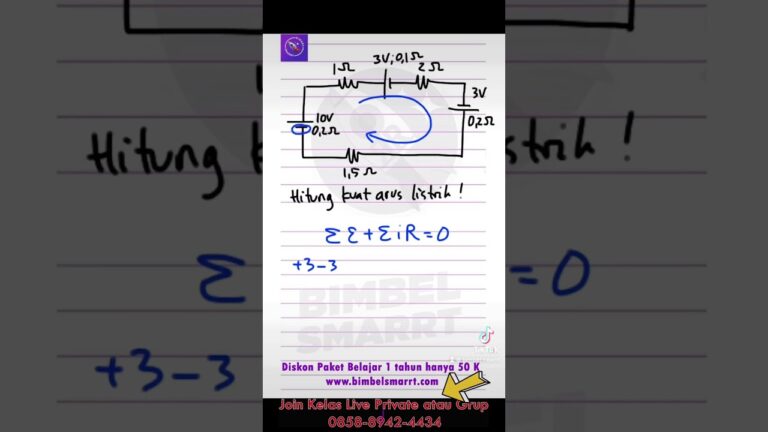 1Ω
3V, 0,1Ω
2Ω
3V
0,2Ω
10V
0,2Ω
1,5Ω
Hitung kuat arus listrik !
Σ ε + Σ i R = 0
+3 - 3
BIMBEL
SMARRT
TikTok
Diskon Paket Belajar 1 tahun hanya 50 K
www.bimbelsmarrt.com
Join Kelas Live Private atau Grup
0858-8942-4434